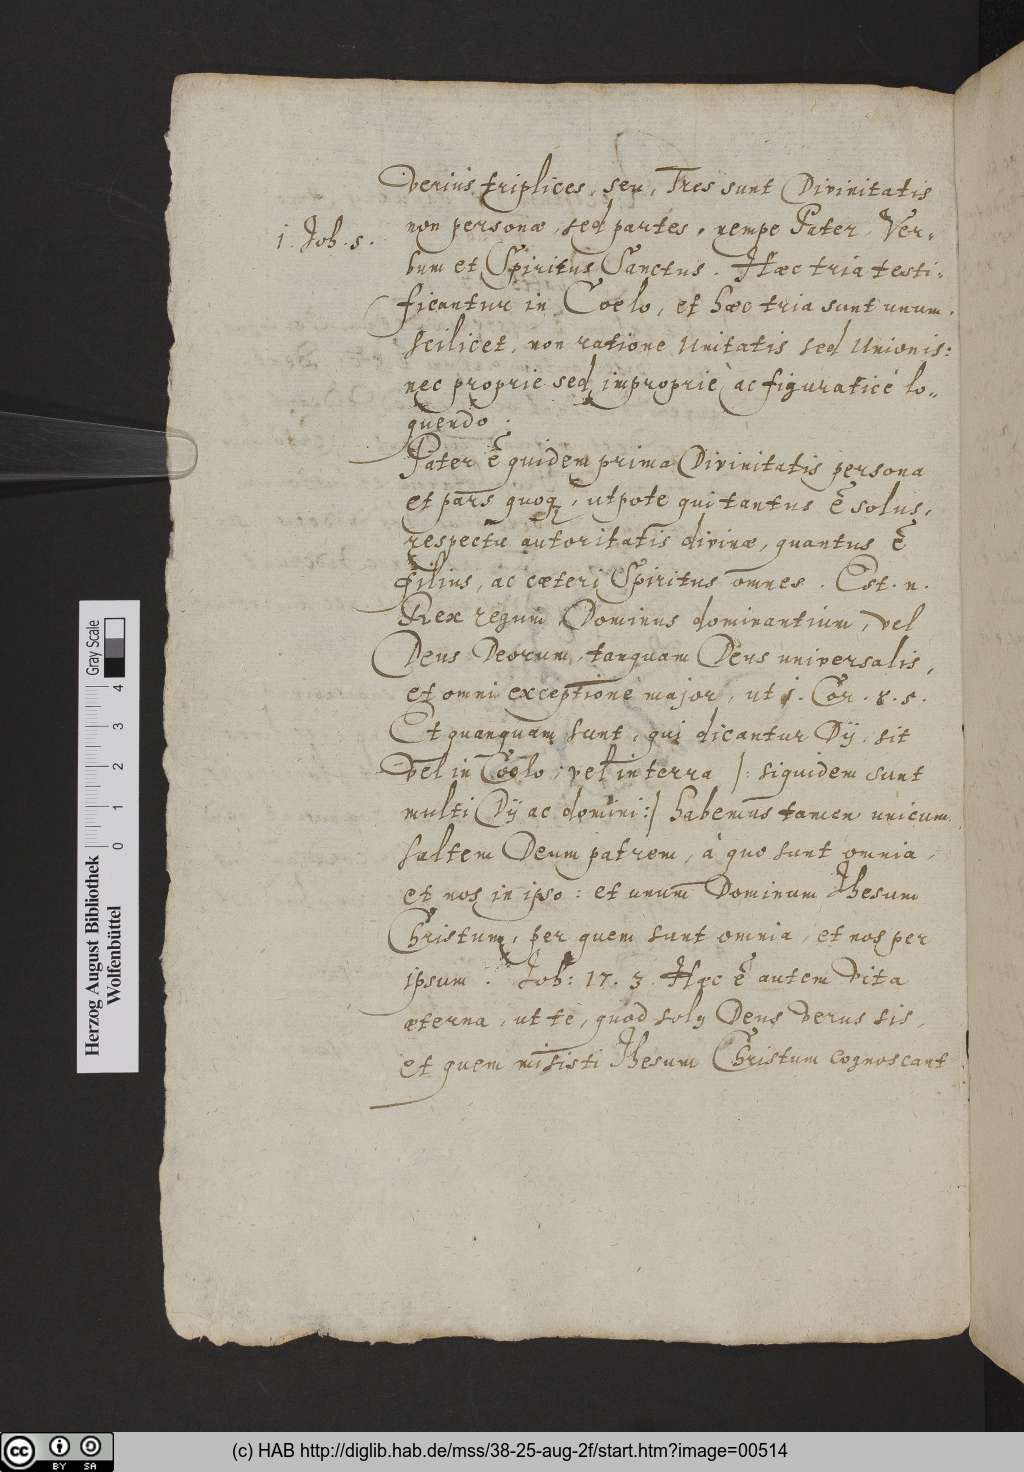 verius triplices, seu, Tres sunt Divinitatis
1. Joh. 5.
non personæ, sed partes, nempe Pater, Ver-
bum et Spiritus Sanctus. Hæc tria testi-
ficantur in Coelo, et hæc tria sunt unum.
scilicet, non ratione Unitatis sed Unionis:
nec proprie sed impropriè ac figuraticè lo-
quendo.
Pater ẽ quidem prima Divinitatis persona
et pars quoq, utpote qui tantus ẽ solus,
respectu autoritatis divinæ, quantus ẽ
filius, ac cæteri Spiritus omnes. Est. n.
Rex regum, Dominus dominantium, vel
Deus Deorum, tanquam Deus universalis,
et omni exceptione major, ut 1. Cor. 8. 5.
Et quanquam sunt, qui dicantur Dij, sit
vel in Coelo, vel in terra |: siquidem sunt
multi Dij ac domini :| habemus tamen unicum
saltem Deum patrem, à quo sunt omnia,
et nos in ipso: et unum Dominum Jhesum
Christum, per quem sunt omnia, et nos per
ipsum. Joh: 17. 3. Hæc ẽ autem vita
æterna, ut te, quod solꝰ Deus verus sis,
et quem misisti Jhesum Christum cognoscant
Herzog August Bibliothek
Wolfenbüttel
Gray Scale
0 1 2 3 4
cc BY SA
(c) HAB http://diglib.hab.de/mss/38-25-aug-2f/start.htm?image=00514